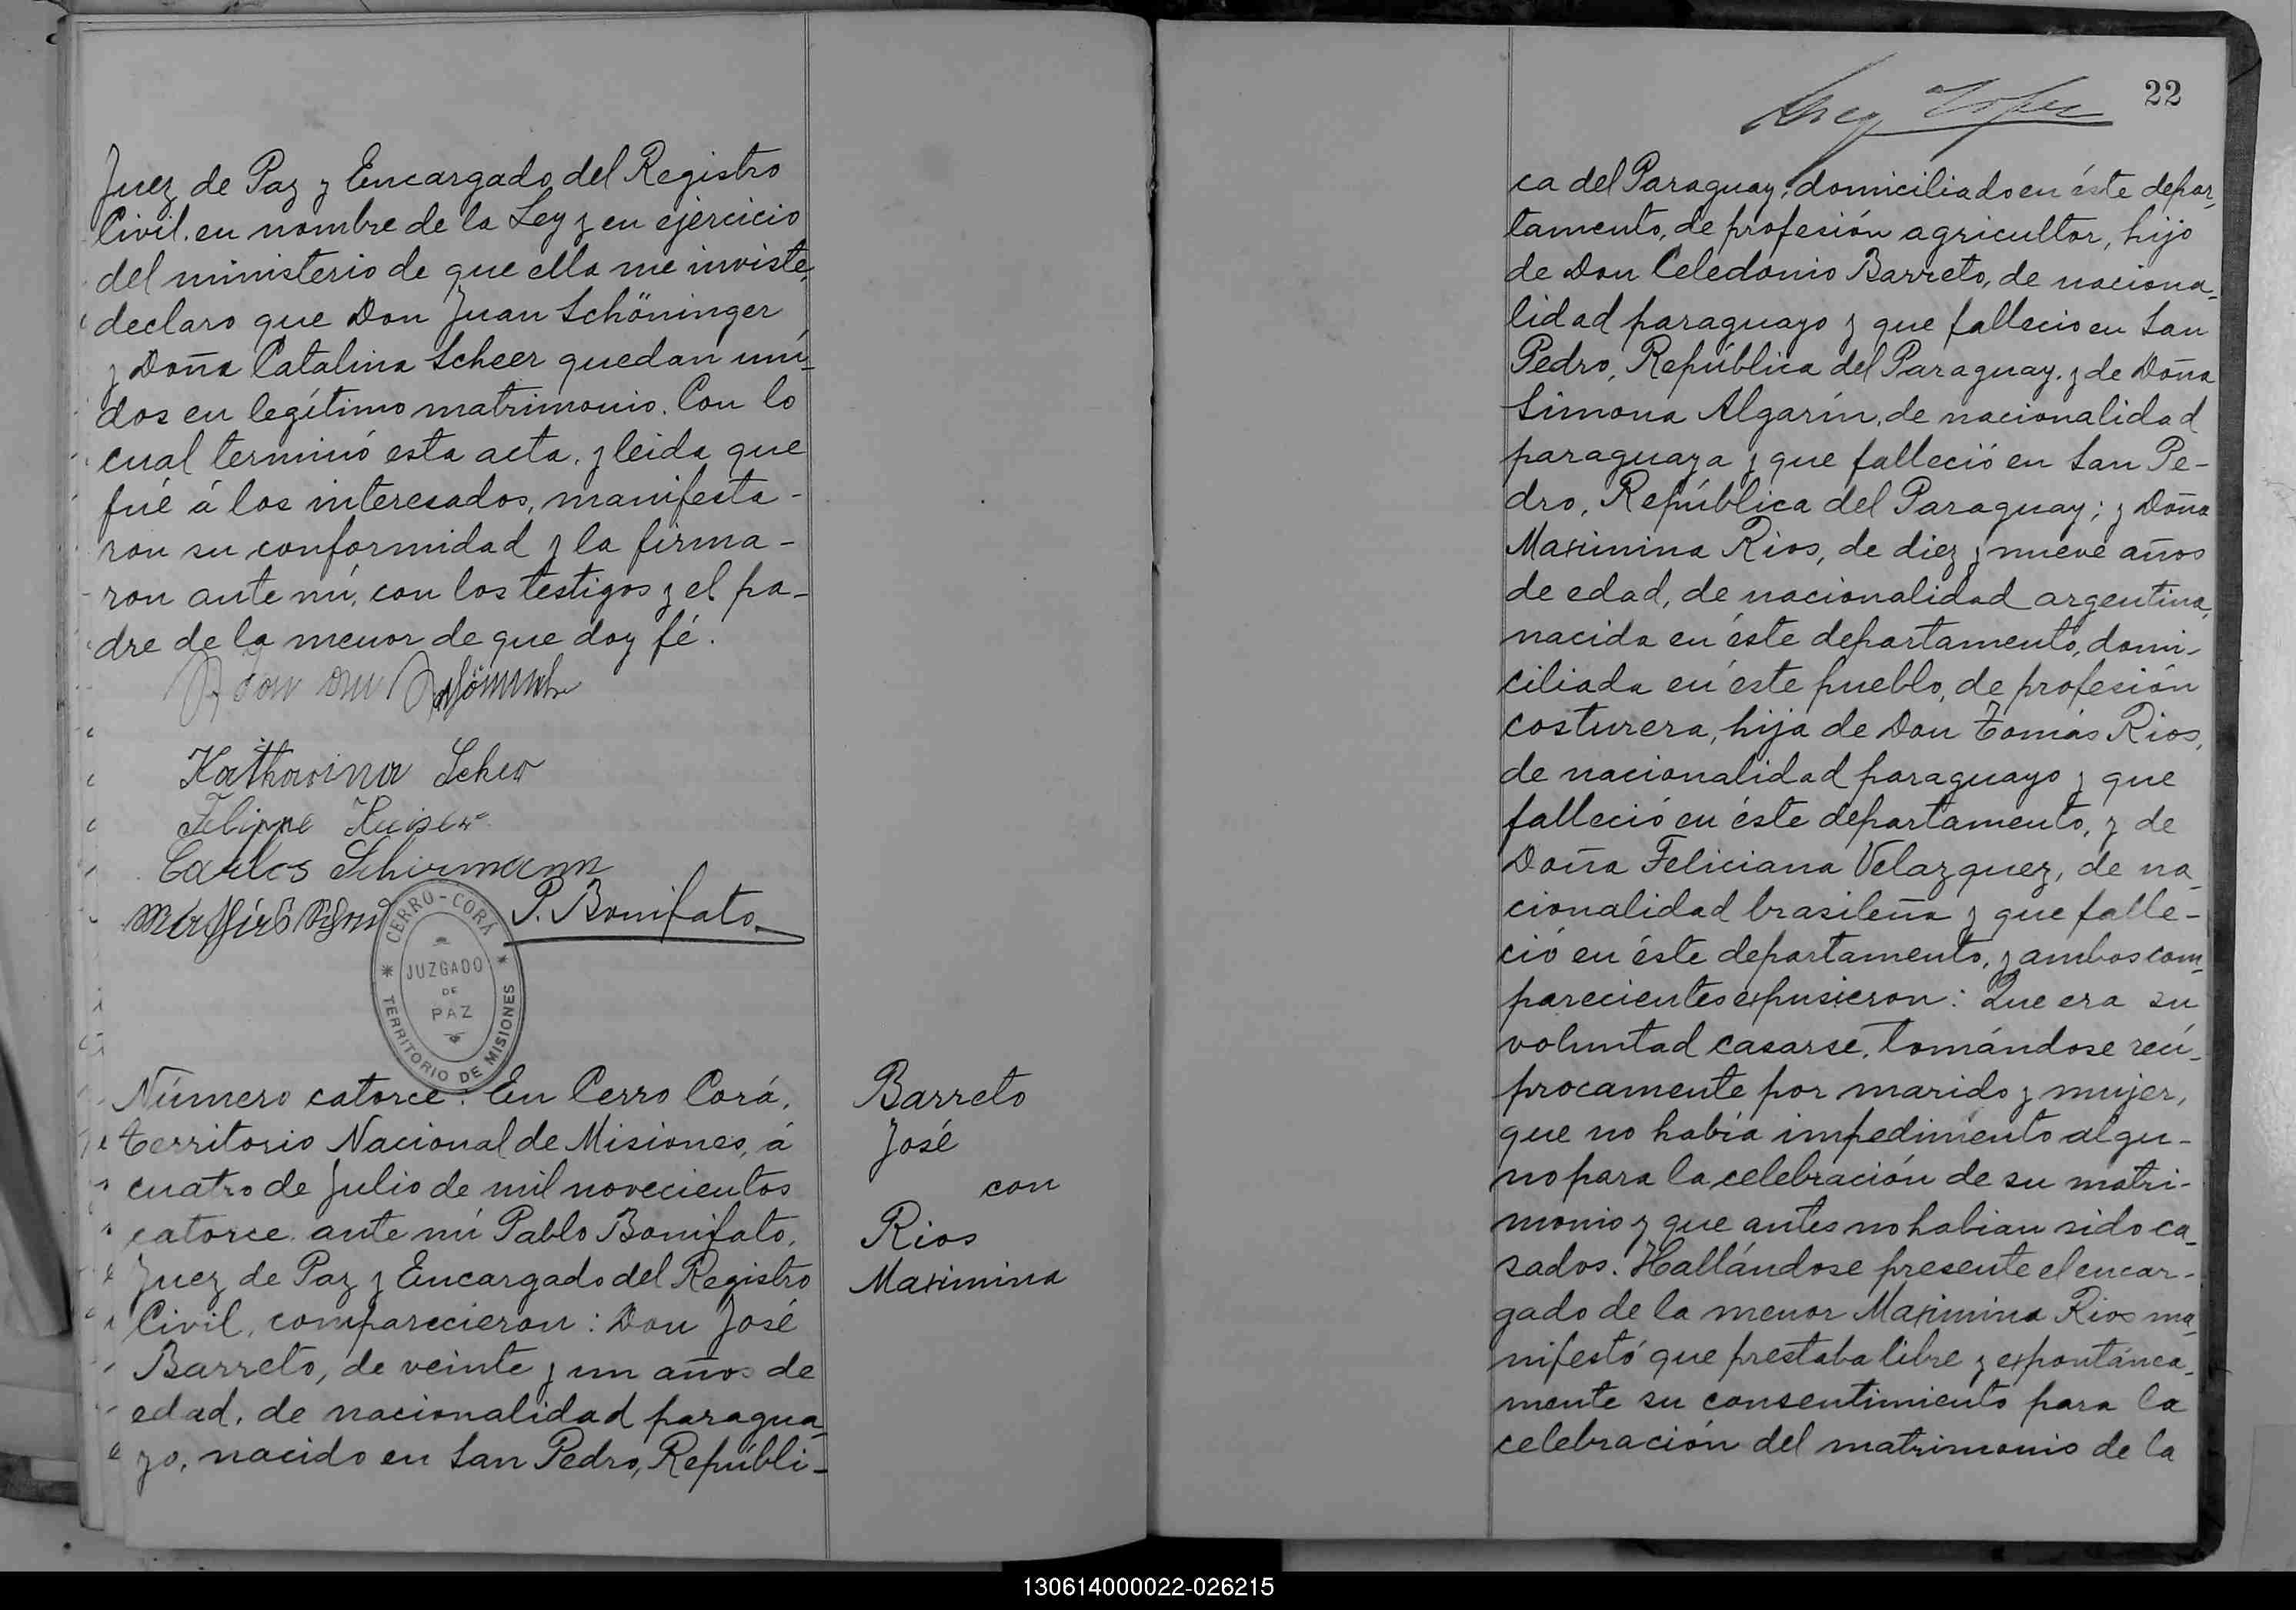 Juez de Paz y Encargado del Registro
Civil, en nombre de la Ley y en ejercicio
del ministerio de que ella me inviste,
declaro que Don Juan Schöninger
y Doña Catalina Scheer quedan uni-
dos en legítimo matrimonio. Con lo
cual terminó esta acta, y leida que
fué á los interesados, manifesta-
ron su conformidad y la firma-
ron ante mí, con los testigos y el pa-
dre de la menor de que doy fé.
Katharina Scher
Felippe
Carlos Schirmann
P. Bonifato
CERRO-CORÁ
JUZGADO
DE
PAZ
TERRITORIO DE MISIONES
Número catorce: En Cerro Corá,
territorio Nacional de Misiones, á
cuatro de Julio de mil novecientos
catorce, ante mí Pablo Bonifato,
Juez de Paz y Encargado del Registro
Civil, comparecieron: Don José
Barreto, de veinte y un años de
edad, de nacionalidad paragua-
yo, nacido en San Pedro, Repúbli-
Barreto
José
con
Rios
Maximina
22
ca del Paraguay, domiciliado en éste depar-
tamento, de profesión agricultor, hijo
de Don Celedonio Barreto, de naciona-
lidad paraguayo y que fallecio en San
Pedro, República del Paraguay, y de Doña
Simona Algarín, de nacionalidad
paraguaya y que falleció en San Pe-
dro, República del Paraguay; y Doña
Maximina Rios, de diez y nueve años
de edad, de nacionalidad argentina,
nacida en éste departamento, domi-
ciliada en éste pueblo, de profesión
costurera, hija de Don Tomás Rios,
de nacionalidad paraguayo y que
falleció en éste departamento, y de
Doña Feliciana Velazquez, de na-
cionalidad brasileña y que falle-
ció en éste departamento, y ambos com-
parecientes expusieron: Que era su
voluntad casarse, tomándose recí-
procamente por marido y mujer,
que no había impedimento algu-
no para la celebración de su matri-
monio y que antes no habian sido ca-
sados. Hallándose presente el encar-
gado de la menor Maximina Rios ma-
nifestó que prestaba libre y expontánea-
mente su consentimiento para la
celebración del matrimonio de la
130614000022-026215